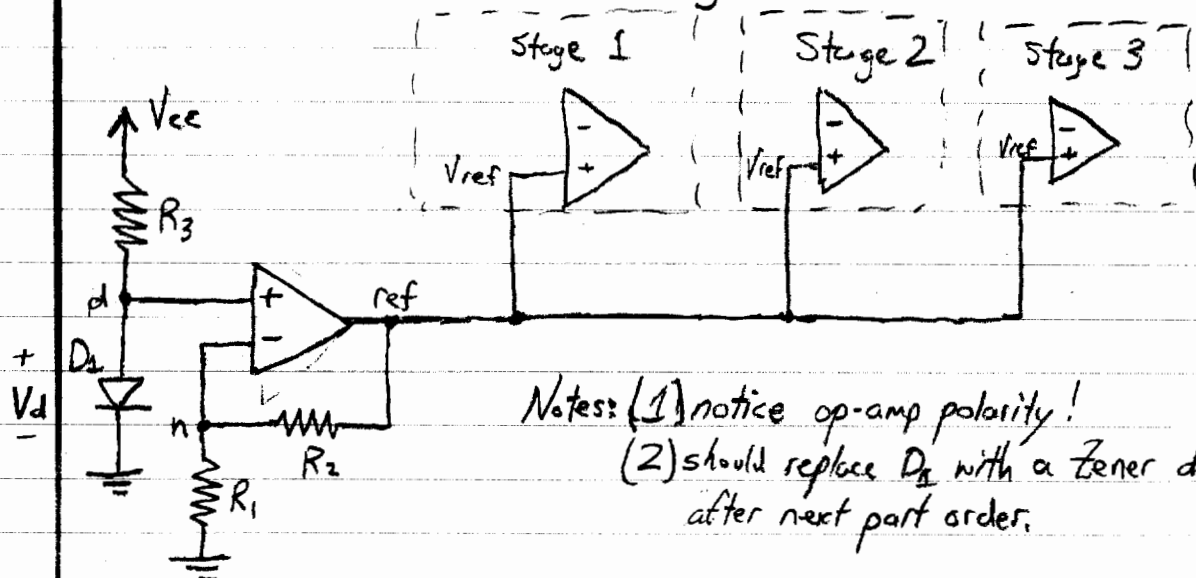 Stage 1
Stage 2
Stage 3
Vcc
R3
Vref
-
+
Vref
-
+
Vref
-
+
d
+
-
ref
+
Vd
-
D1
n
R2
R1
Notes: (1) notice op-amp polarity!
(2) should replace D1 with a Zener d
after next part order.